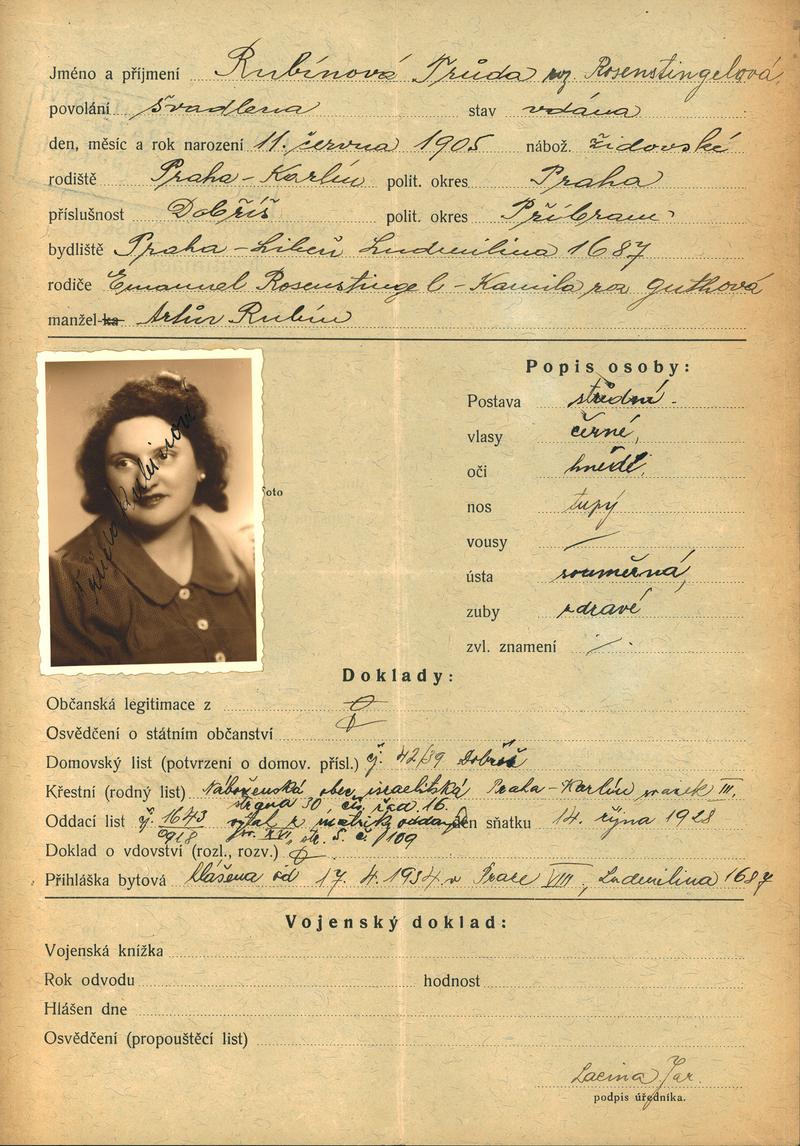 Jméno a příjmení Rubínová Trůda roz. Rosenstingelová
povolání švadlena stav vdána
den, měsíc a rok narození 11. června 1905 nábož. židovské
rodiště Praha-Karlín polit. okres Praha
příslušnost Dobříš polit. okres Příbram
bydliště Praha-Libeň Ludmilina 1687
rodiče Emanuel Rosenstingel - Kamila roz Guthová
manžel-ka Artur Rubín
Popis osoby:
Postava střední.
vlasy černé,
oči hnědé,
foto
nos tupý
vousy /
ústa souměrná,
zuby zdravé
zvl. znamení /.
Rubínová
Doklady:
Občanská legitimace z
Osvědčení o státním občanství
Domovský list (potvrzení o domov. přísl.) č. 42/39 Dobříš
Křestní (rodný list) Náboženská obec israelitská Praha-Karlín svazek III.
strana 30 čís. řad. 16.
Oddací list č. 1643/928 z matriky oddan. den sňatku 14. října 1928
XVI, str. 5. č. 109
Doklad o vdovství (rozl., rozv.)
Přihláška bytová hlášena od 17. 4. 1934 v Praze VIII, Ludmilina 1687
Vojenský doklad:
Vojenská knížka
Rok odvodu hodnost
Hlášen dne
Osvědčení (propouštěcí list)
Lacina Jar.
podpis úředníka.